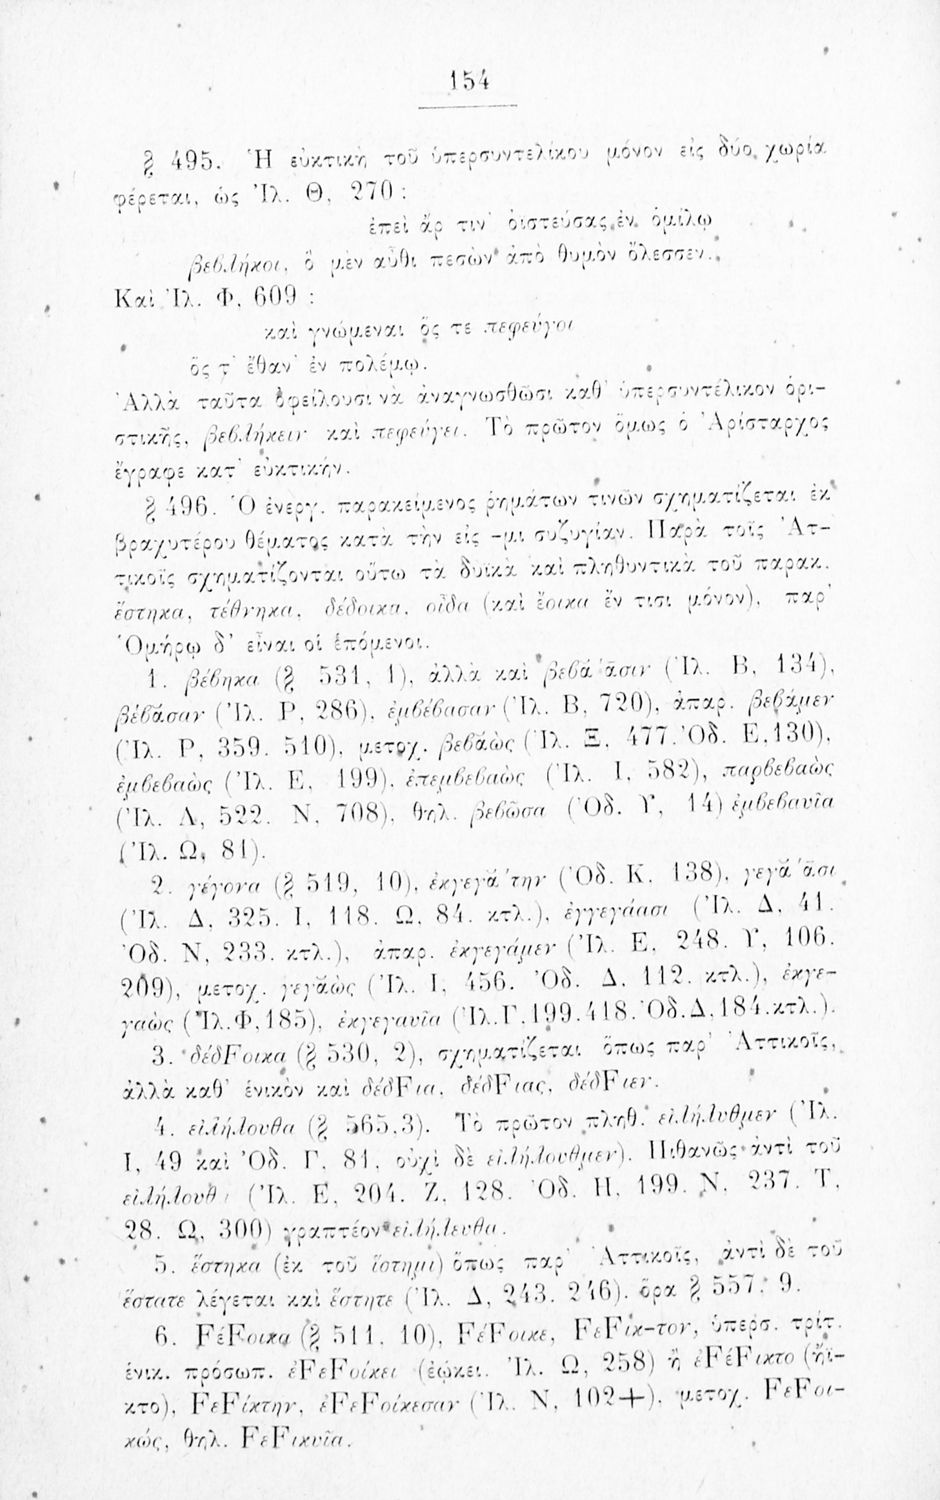 154
§ 495. Ἡ εὐκτικὴ τοῦ ὑπερσυντελίκου μόνον εἰς δύο χωρία
φέρεται, ὡς Ἰλ. Θ, 270 :
ἐπεὶ ἄρ τιν' ὀϊστεύσας ἐν ὁμίλῳ
βεβλήκοι, ὁ μὲν αὖθι πεσὼν ἀπὸ θυμὸν ὄλεσσεν.
Καὶ Ἰλ. Φ, 609 :
καὶ γνώμεναι ὅς τε πεφεύγοι
ὅς τ' ἔθαν' ἐν πολέμῳ.
Ἀλλὰ ταῦτα ὀφείλουσι νὰ ἀναγνωσθῶσι καθ' ὑπερσυντέλικον ὁρι-
στικῆς, βεβλήκειν καὶ πεφεύγει. Τὸ πρῶτον ὅμως ὁ Ἀρίσταρχος
ἔγραφε κατ' εὐκτικήν.
§ 496. Ὁ ἐνεργ. παρακείμενος ῥημάτων τινῶν σχηματίζεται ἐκ
βραχυτέρου θέματος κατὰ τὴν εἰς -μι συζυγίαν. Παρὰ τοῖς Ἀτ-
τικοῖς σχηματίζονται οὕτω τὰ δυϊκὰ καὶ πληθυντικὰ τοῦ παρακ.
ἕστηκα, τέθνηκα, δέδοικα, οἶδα (καὶ ἔοικα ἔν τισι μόνον), παρ'
Ὁμήρῳ δ' εἶναι οἱ ἑπόμενοι.
1. βέβηκα (§ 531, 1), ἀλλὰ καὶ βεβά̆ᾱσιν (Ἰλ. Β, 134),
βέβᾰσαν (Ἰλ. Ρ, 286), ἐμβέβασαν (Ἰλ. Β, 720), ἀπαρ. βεβάμεν
(Ἰλ. Ρ, 359. 510), μετοχ. βεβᾰὼς (Ἰλ. Ξ, 477. Ὀδ. Ε, 130),
ἐμβεβαὼς (Ἰλ. Ε, 199), ἐπεμβεβαὼς (Ἰλ. Ι, 582), παρβεβαὼς
(Ἰλ. Λ, 522. Ν, 708), θηλ. βεβῶσα (Ὀδ. Υ, 14) ἐμβεβαυῖα
(Ἰλ. Ω, 81).
2. γέγονα (§ 519, 10), ἐκγεγά̆την (Ὀδ. Κ, 138), γεγά̆ᾱσι
(Ἰλ. Δ, 325. Ι, 118. Ω, 84. κτλ.), ἐγγεγάασι (Ἰλ. Δ, 41.
Ὀδ. Ν, 233. κτλ.), ἀπαρ. ἐκγεγάμεν (Ἰλ. Ε, 248. Υ, 106.
209), μετοχ. γεγᾰὼς (Ἰλ. Ι, 456. Ὀδ. Δ, 112. κτλ.), ἐκγε-
γαὼς (Ἰλ. Φ, 185), ἐκγεγαυῖα (Ἰλ. Γ, 199. 418. Ὀδ. Δ, 184. κτλ.).
3. δέδϜοικα (§ 530, 2), σχηματίζεται ὅπως παρ' Ἀττικοῖς,
ἀλλὰ καθ' ἑνικὸν καὶ δέδϜια, δέδϜιας, δέδϜιεν.
4. εἰλήλουθα (§ 565, 3). Τὸ πρῶτον πληθ. εἰλήλυθμεν (Ἰλ.
Ι, 49 καὶ Ὀδ. Γ, 81, οὐχὶ δὲ εἰλήλουθμεν). Πιθανῶς ἀντὶ τοῦ
εἰλήλουθ (Ἰλ. Ε, 204. Ζ, 128. Ὀδ. Η, 199. Ν, 237. Τ,
28. Ω, 300) γραπτέον εἰλήλευθα.
5. ἕστηκα (ἐκ τοῦ ἵστημι) ὅπως παρ' Ἀττικοῖς, ἀντὶ δὲ τοῦ
ἕστατε λέγεται καὶ ἕστητε (Ἰλ. Δ, 243. 246). ὅρα § 557, 9.
6. ϜέϜοικα (§ 511, 10), ϜέϜοικε, ϜεϜίκ-τον, ὑπερσ. τρίτ.
ἑνικ. πρόσωπ. ἐϜεϜοίκει (ἐῴκει. Ἰλ. Ω, 258) ἢ ἐϜέϜικτο (ἤϊ-
κτο), ϜεϜίκτην, ἐϜεϜοίκεσαν (Ἰλ. Ν, 102+), μετοχ. ϜεϜοι-
κώς, θηλ. ϜεϜικυῖα.